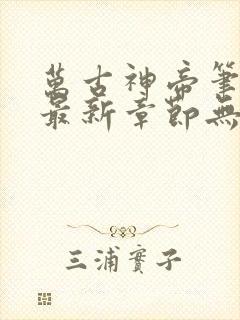 萬古神帝筆
最新章節無
三浦實子